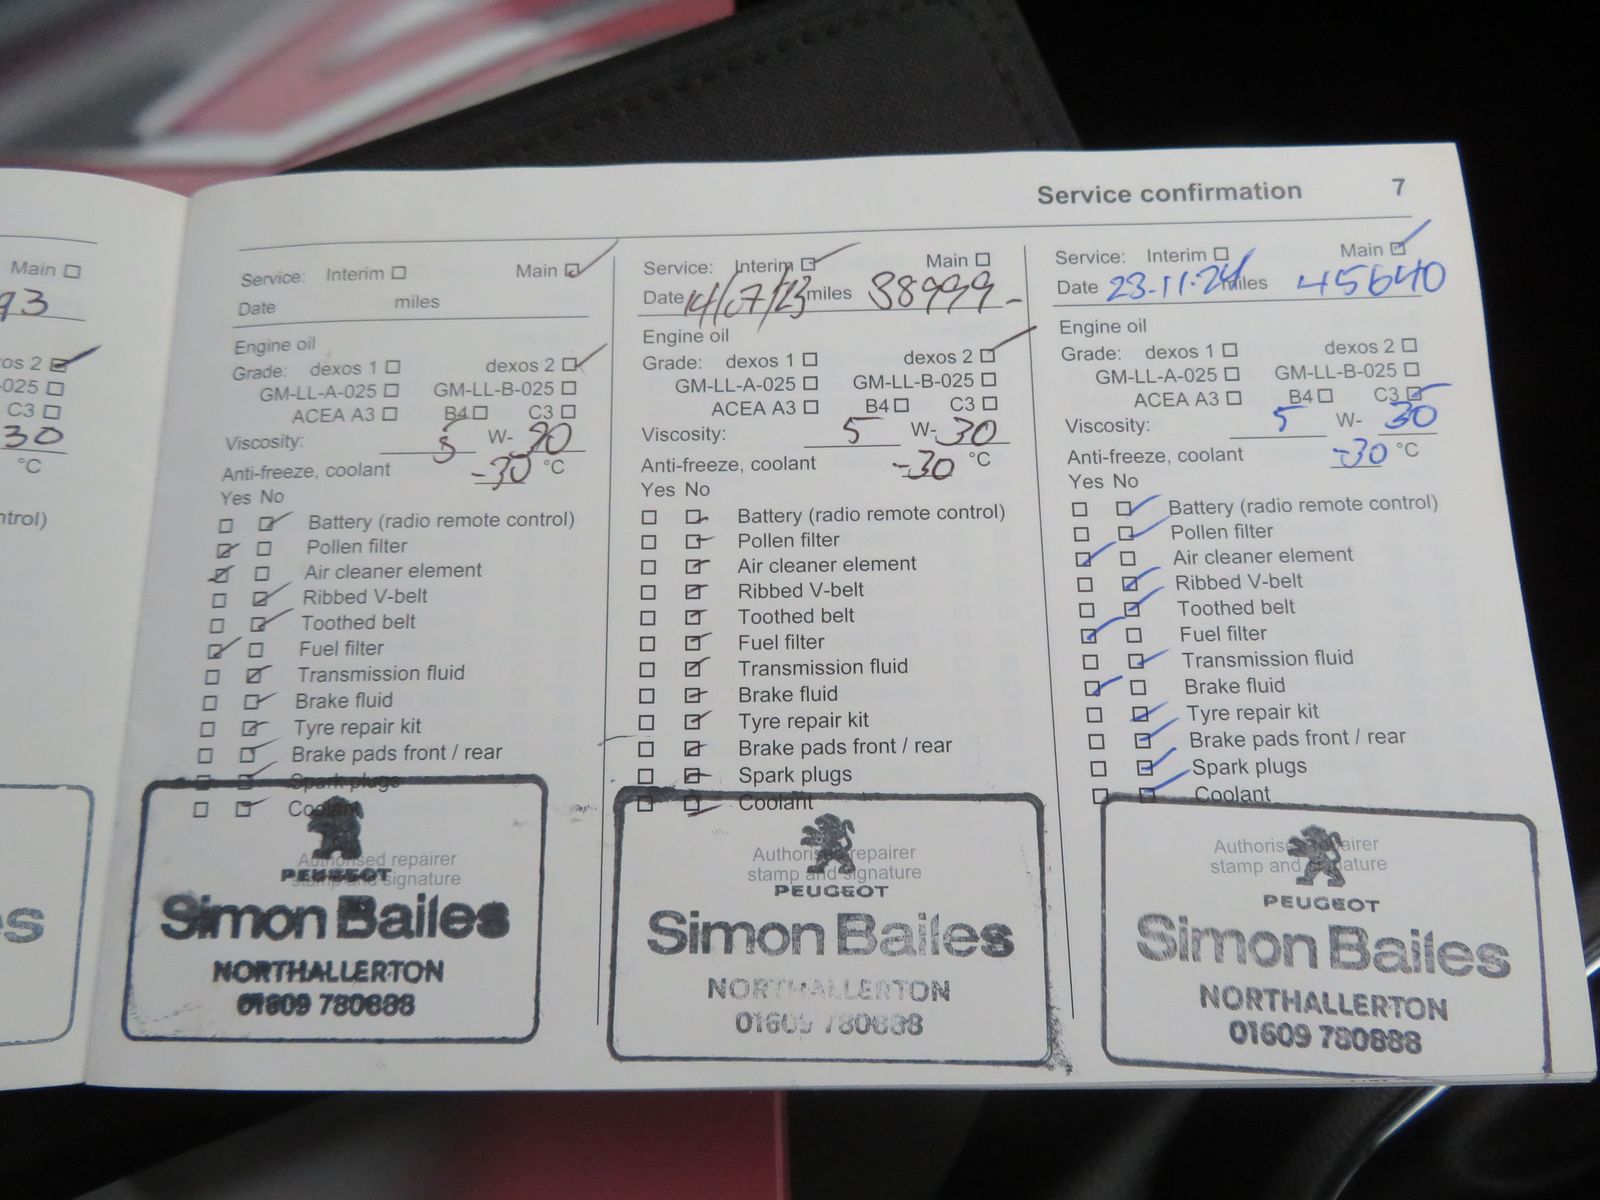 Service confirmation 7
Main
93
os 2
-025
C3
30
°C
ntrol)
es
Service: Interim Main
Date miles
Engine oil
Grade: dexos 1 dexos 2
GM-LL-A-025 GM-LL-B-025
ACEA A3 B4 C3
Viscosity: 5 W-30
Anti-freeze, coolant -30 °C
Yes No
Battery (radio remote control)
Pollen filter
Air cleaner element
Ribbed V-belt
Toothed belt
Fuel filter
Transmission fluid
Brake fluid
Tyre repair kit
Brake pads front / rear
Spark plugs
Coolant
Authorised repairer
stamp and signature
PEUGEOT
Simon Bailes
NORTHALLERTON
01609 780888
Service: Interim Main
Date 14/07/23 miles 38999-
Engine oil
Grade: dexos 1 dexos 2
GM-LL-A-025 GM-LL-B-025
ACEA A3 B4 C3
Viscosity: 5 W-30
Anti-freeze, coolant -30 °C
Yes No
Battery (radio remote control)
Pollen filter
Air cleaner element
Ribbed V-belt
Toothed belt
Fuel filter
Transmission fluid
Brake fluid
Tyre repair kit
Brake pads front / rear
Spark plugs
Coolant
Authorised repairer
stamp and signature
PEUGEOT
Simon Bailes
NORTHALLERTON
01609 780888
Service: Interim Main
Date 23-11-24 miles 45640
Engine oil
Grade: dexos 1 dexos 2
GM-LL-A-025 GM-LL-B-025
ACEA A3 B4 C3
Viscosity: 5 W- 30
Anti-freeze, coolant -30 °C
Yes No
Battery (radio remote control)
Pollen filter
Air cleaner element
Ribbed V-belt
Toothed belt
Fuel filter
Transmission fluid
Brake fluid
Tyre repair kit
Brake pads front / rear
Spark plugs
Coolant
Authorised repairer
stamp and signature
PEUGEOT
Simon Bailes
NORTHALLERTON
01609 780888